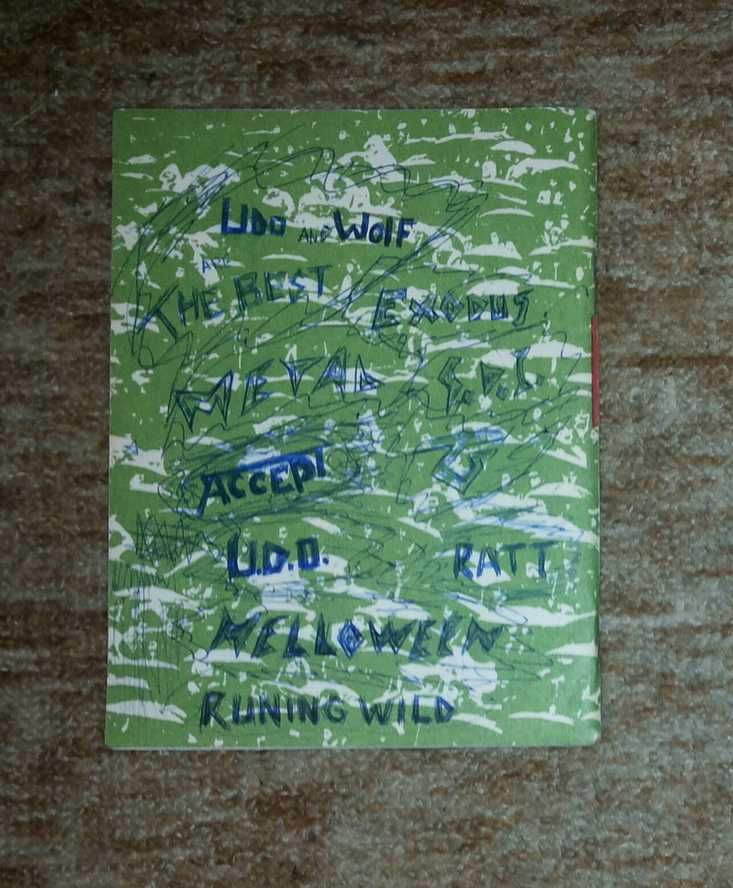 UDO AND WOLF
ARE
THE BEST
EXODUS
METAL
S.D.I.
ACCEPT
U.D.O.
RATT
HELLOWEEN
RUNING WILD